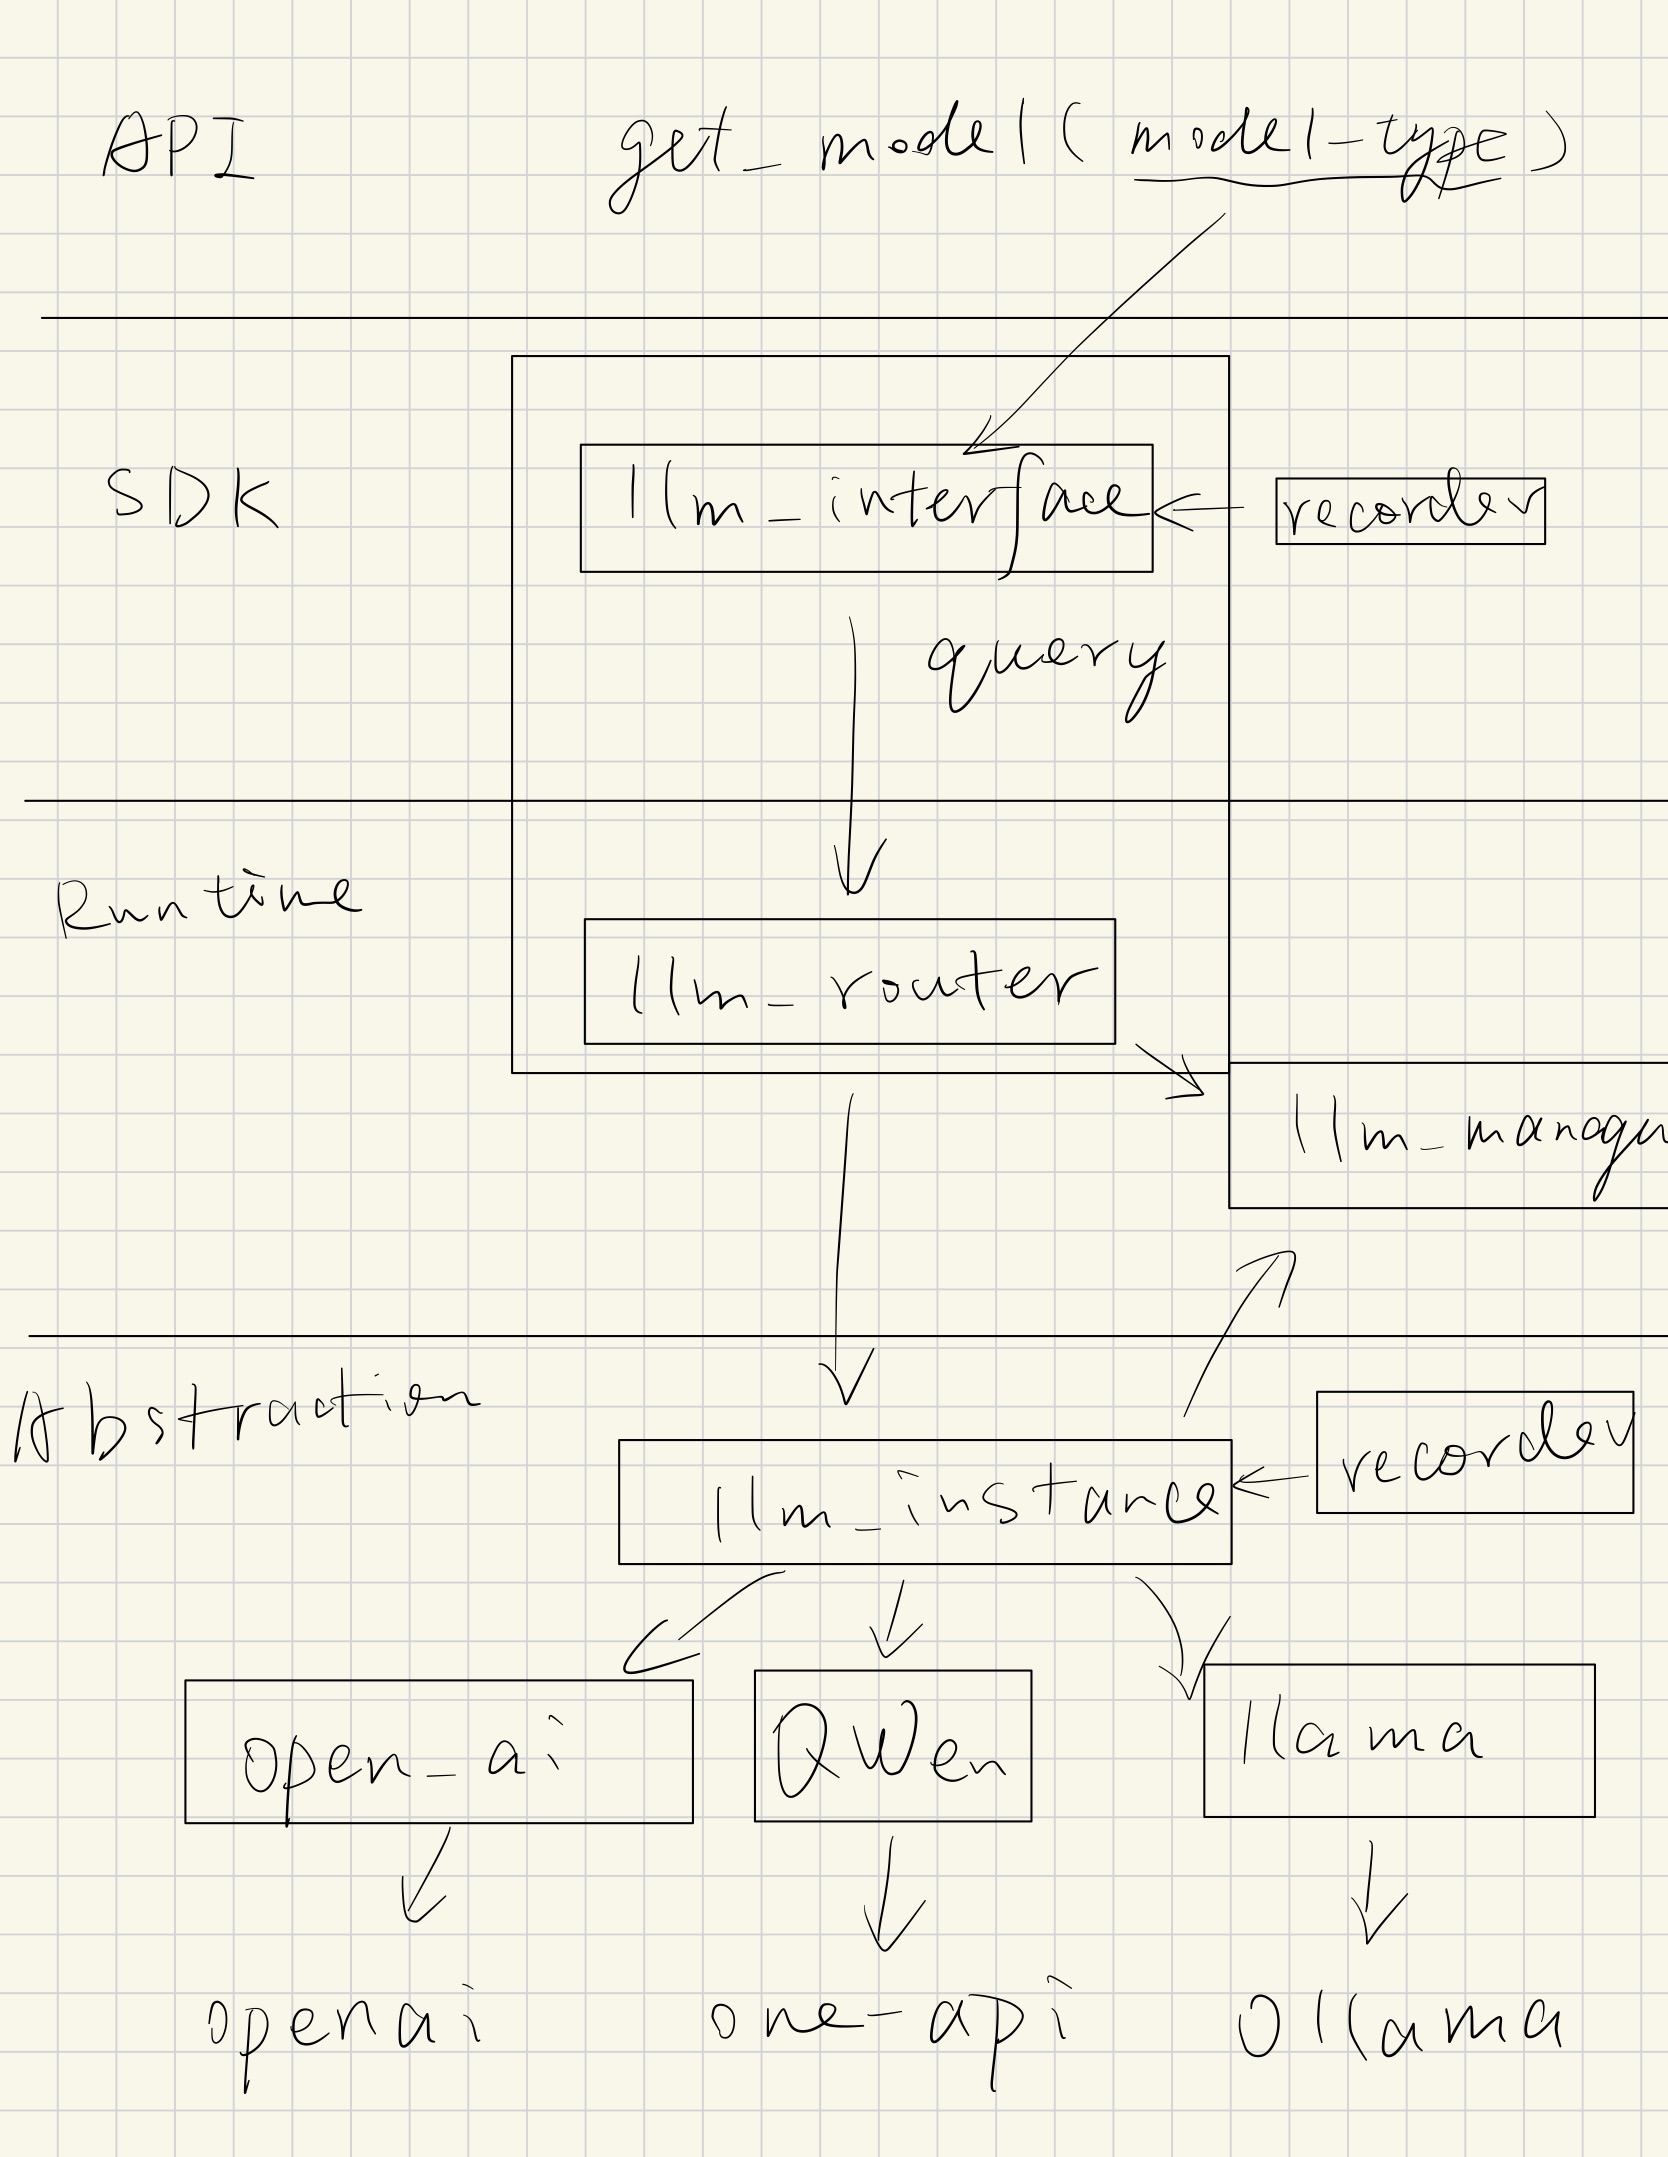 API get_model(model-type)
SDK llm_interface recorder
query
Runtime
llm_router
Abstraction
recorder
llm_instance
open_ai QWen llama
openai one-api Ollama